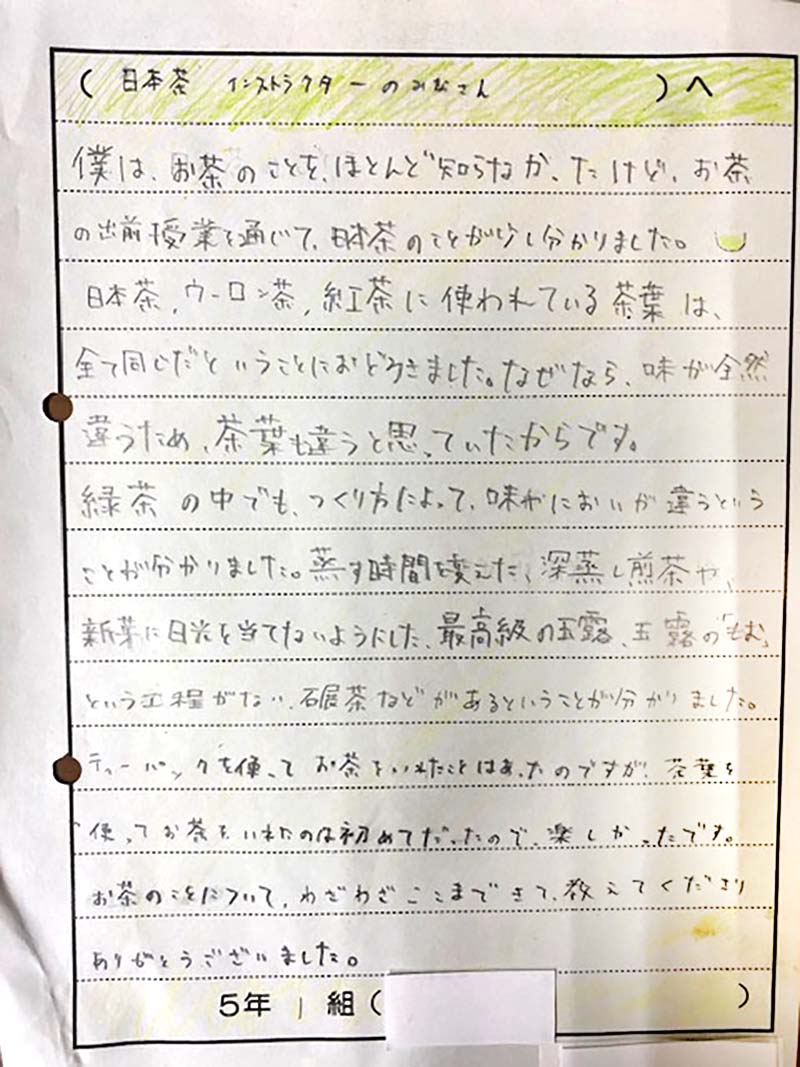 (日本茶 インストラクターのみなさん)へ
僕は、お茶のことを、ほとんど知らなかったけど、お茶
の出前授業を通じて、日本茶のことが少し分かりました。
日本茶、ウーロン茶、紅茶に使われている茶葉は、
全て同じだということにおどろきました。なぜなら、味が全然
違うため、茶葉も違うと思っていたからです。
緑茶の中でも、つくり方によって、味やにおいが違うという
ことが分かりました。蒸す時間を変えた、深蒸し煎茶や、
新葉に日光を当てないようにした、最高級の玉露、玉露の「もむ」
という工程がない、碾茶などがあるということが分かりました。
ティーパックを使ってお茶をいれたことはあったのですが、茶葉を
使ってお茶をいれたのは初めてだったので、楽しかったです。
お茶のことについて、わざわざここまできて、教えてくださり
ありがとうございました。
5年 1 組( )